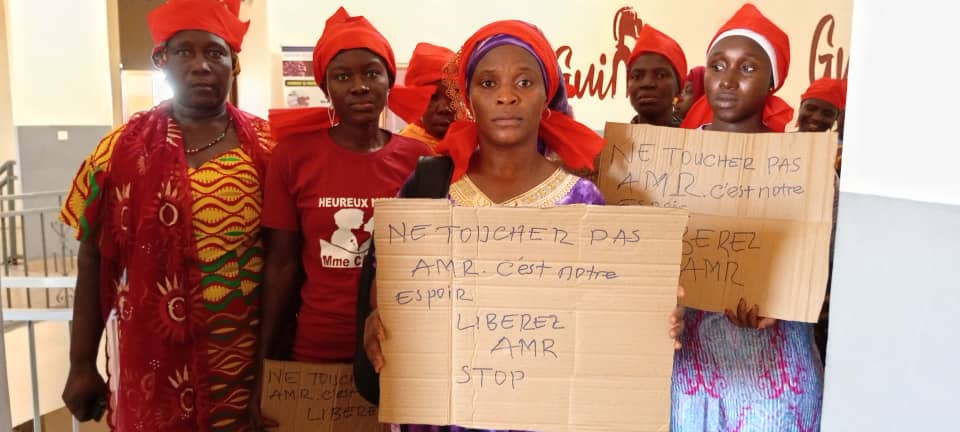 Gui
Gu
HEUREUX
Mme C
NE TOUCHER PAS
AMR. c'est notre
ESPOIR
LIBEREZ
AMR
STOP
NE TOUCHER PAS
AMR. c'est notre
ESPOIR
BEREZ
AMR
NE TOUCH
AMR. c'est
LIBERE